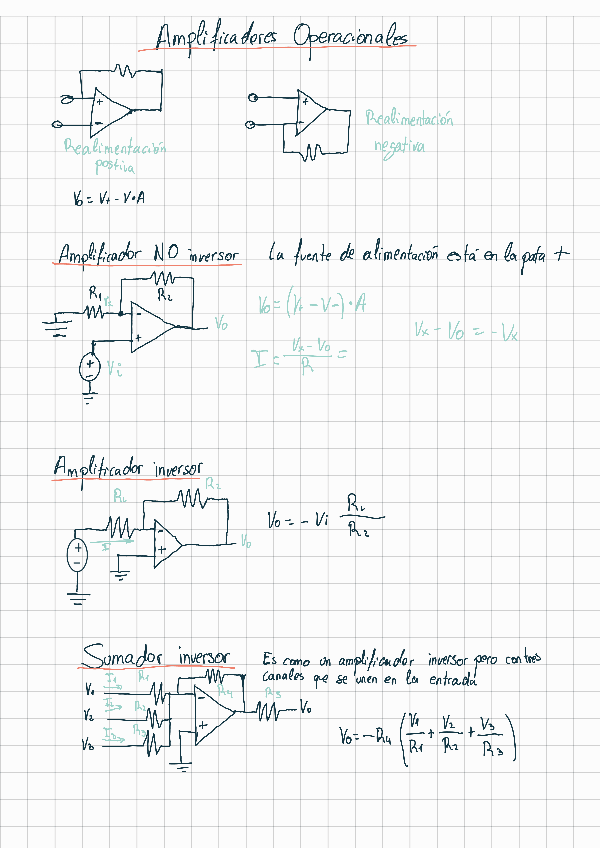 Amplificadores Operacionales
+
-
Realimentación
positiva
+
-
Realimentación
negativa
Vo = V+ - V- • A
Amplificador NO inversor La fuente de alimentación está en la pata +
R1
R2
-
+
Vo
+
-
Vi
Vo = (V+ - V-) • A
I = Vx - Vo / R =
Vx - Vo = -Vx
Amplificador inversor
R2
-
+
Vo
+
-
I
Vo = - Vi
R2
Sumador inversor
Es como un amplificador inversor pero con tres
canales que se unen en la entrada
V1 I1 R1
V2 I2 R2
V3 I3 R3
R4
-
+
R5
Vo
Vo = -R4 (V1/R1 + V2/R2 + V3/R3)